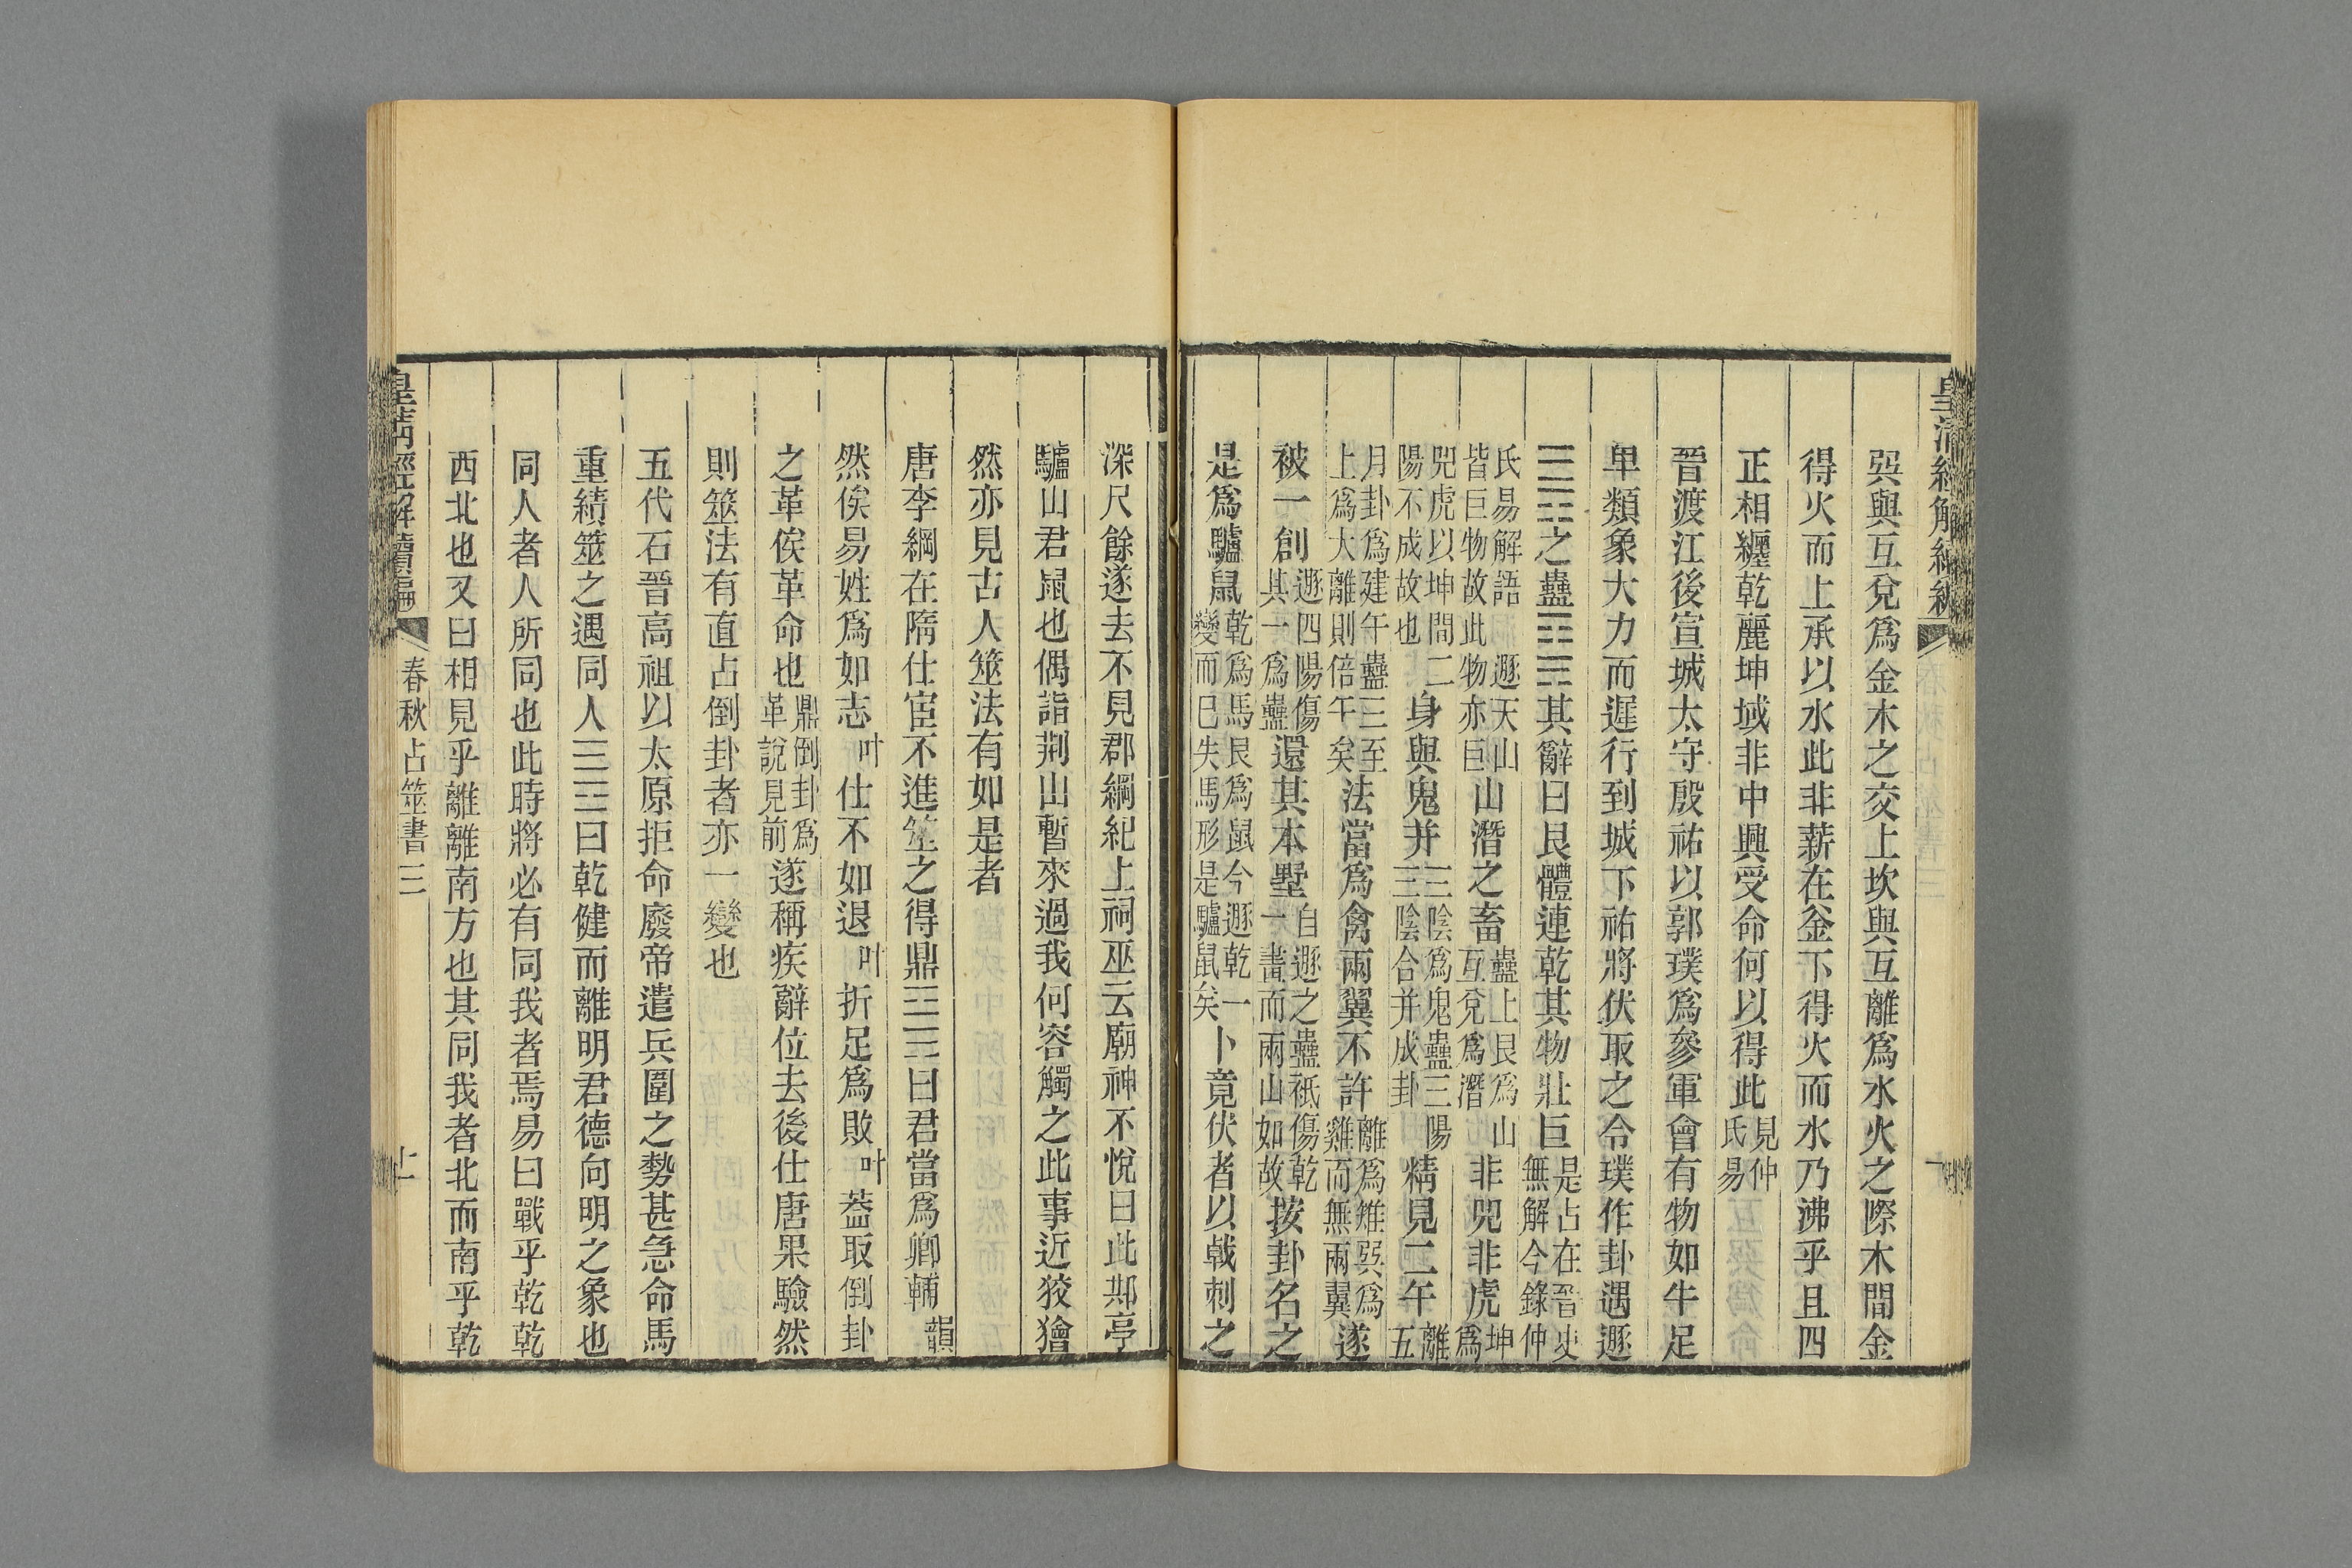 皇清經解續編
巽與互兌爲金木之交上坎與互離爲水火之際木間金
得火而上承以水此非薪在釜下得火而水乃沸乎且四
正相纏乾麗坤域非中興受命何以得此見仲氏易
晉渡江後宣城太守殷祐以郭璞爲參軍會有物如牛足
卑類象大力而遲行到城下祐將伏取之令璞作卦遇遯
䷠之蠱䷑其辭曰艮體連乾其物壯巨是占在晉史無解今錄仲
氏易解語遯天山皆巨物故此物亦巨山潛之畜蠱上艮爲山互兌爲潛非兕非虎坤爲
兕虎以坤間二陽不成故也身與鬼并三陰爲鬼蠱三陽三陰合并成卦精見二午離五
月卦爲建午蠱三至上爲大離則倍午矣法當爲禽兩翼不許離爲雉巽爲雞而無兩翼遂
被一創遯四陽傷其一爲蠱還其本墅自遯之蠱祇傷乾一畫而兩山如故按卦名之
是爲驢鼠乾爲馬艮爲鼠今遯乾一變而巳失馬形是驢鼠矣卜竟伏者以戟刺之
深尺餘遂去不見郡綱紀上祠巫云廟神不悅曰此䢼亭
驢山君鼠也偶詣荆山暫來過我何容觸之此事近狡獪
然亦見古人筮法有如是者
唐李綱在隋仕宦不進筮之得鼎䷱曰君當爲卿輔韻
然俟易姓爲如志叶仕不如退叶折足爲敗叶葢取倒卦
之革俟革命也鼎倒卦爲革說見前遂稱疾辭位去後仕唐果驗然
則筮法有直占倒卦者亦一變也
五代石晉高祖以太原拒命廢帝遣兵圍之勢甚急命馬
重績筮之遇同人䷌曰乾健而離明君德向明之象也
同人者人所同也此時將必有同我者焉易曰戰乎乾乾
西北也又曰相見乎離離南方也其同我者北而南乎乾
皇清經解續編
春秋占筮書三